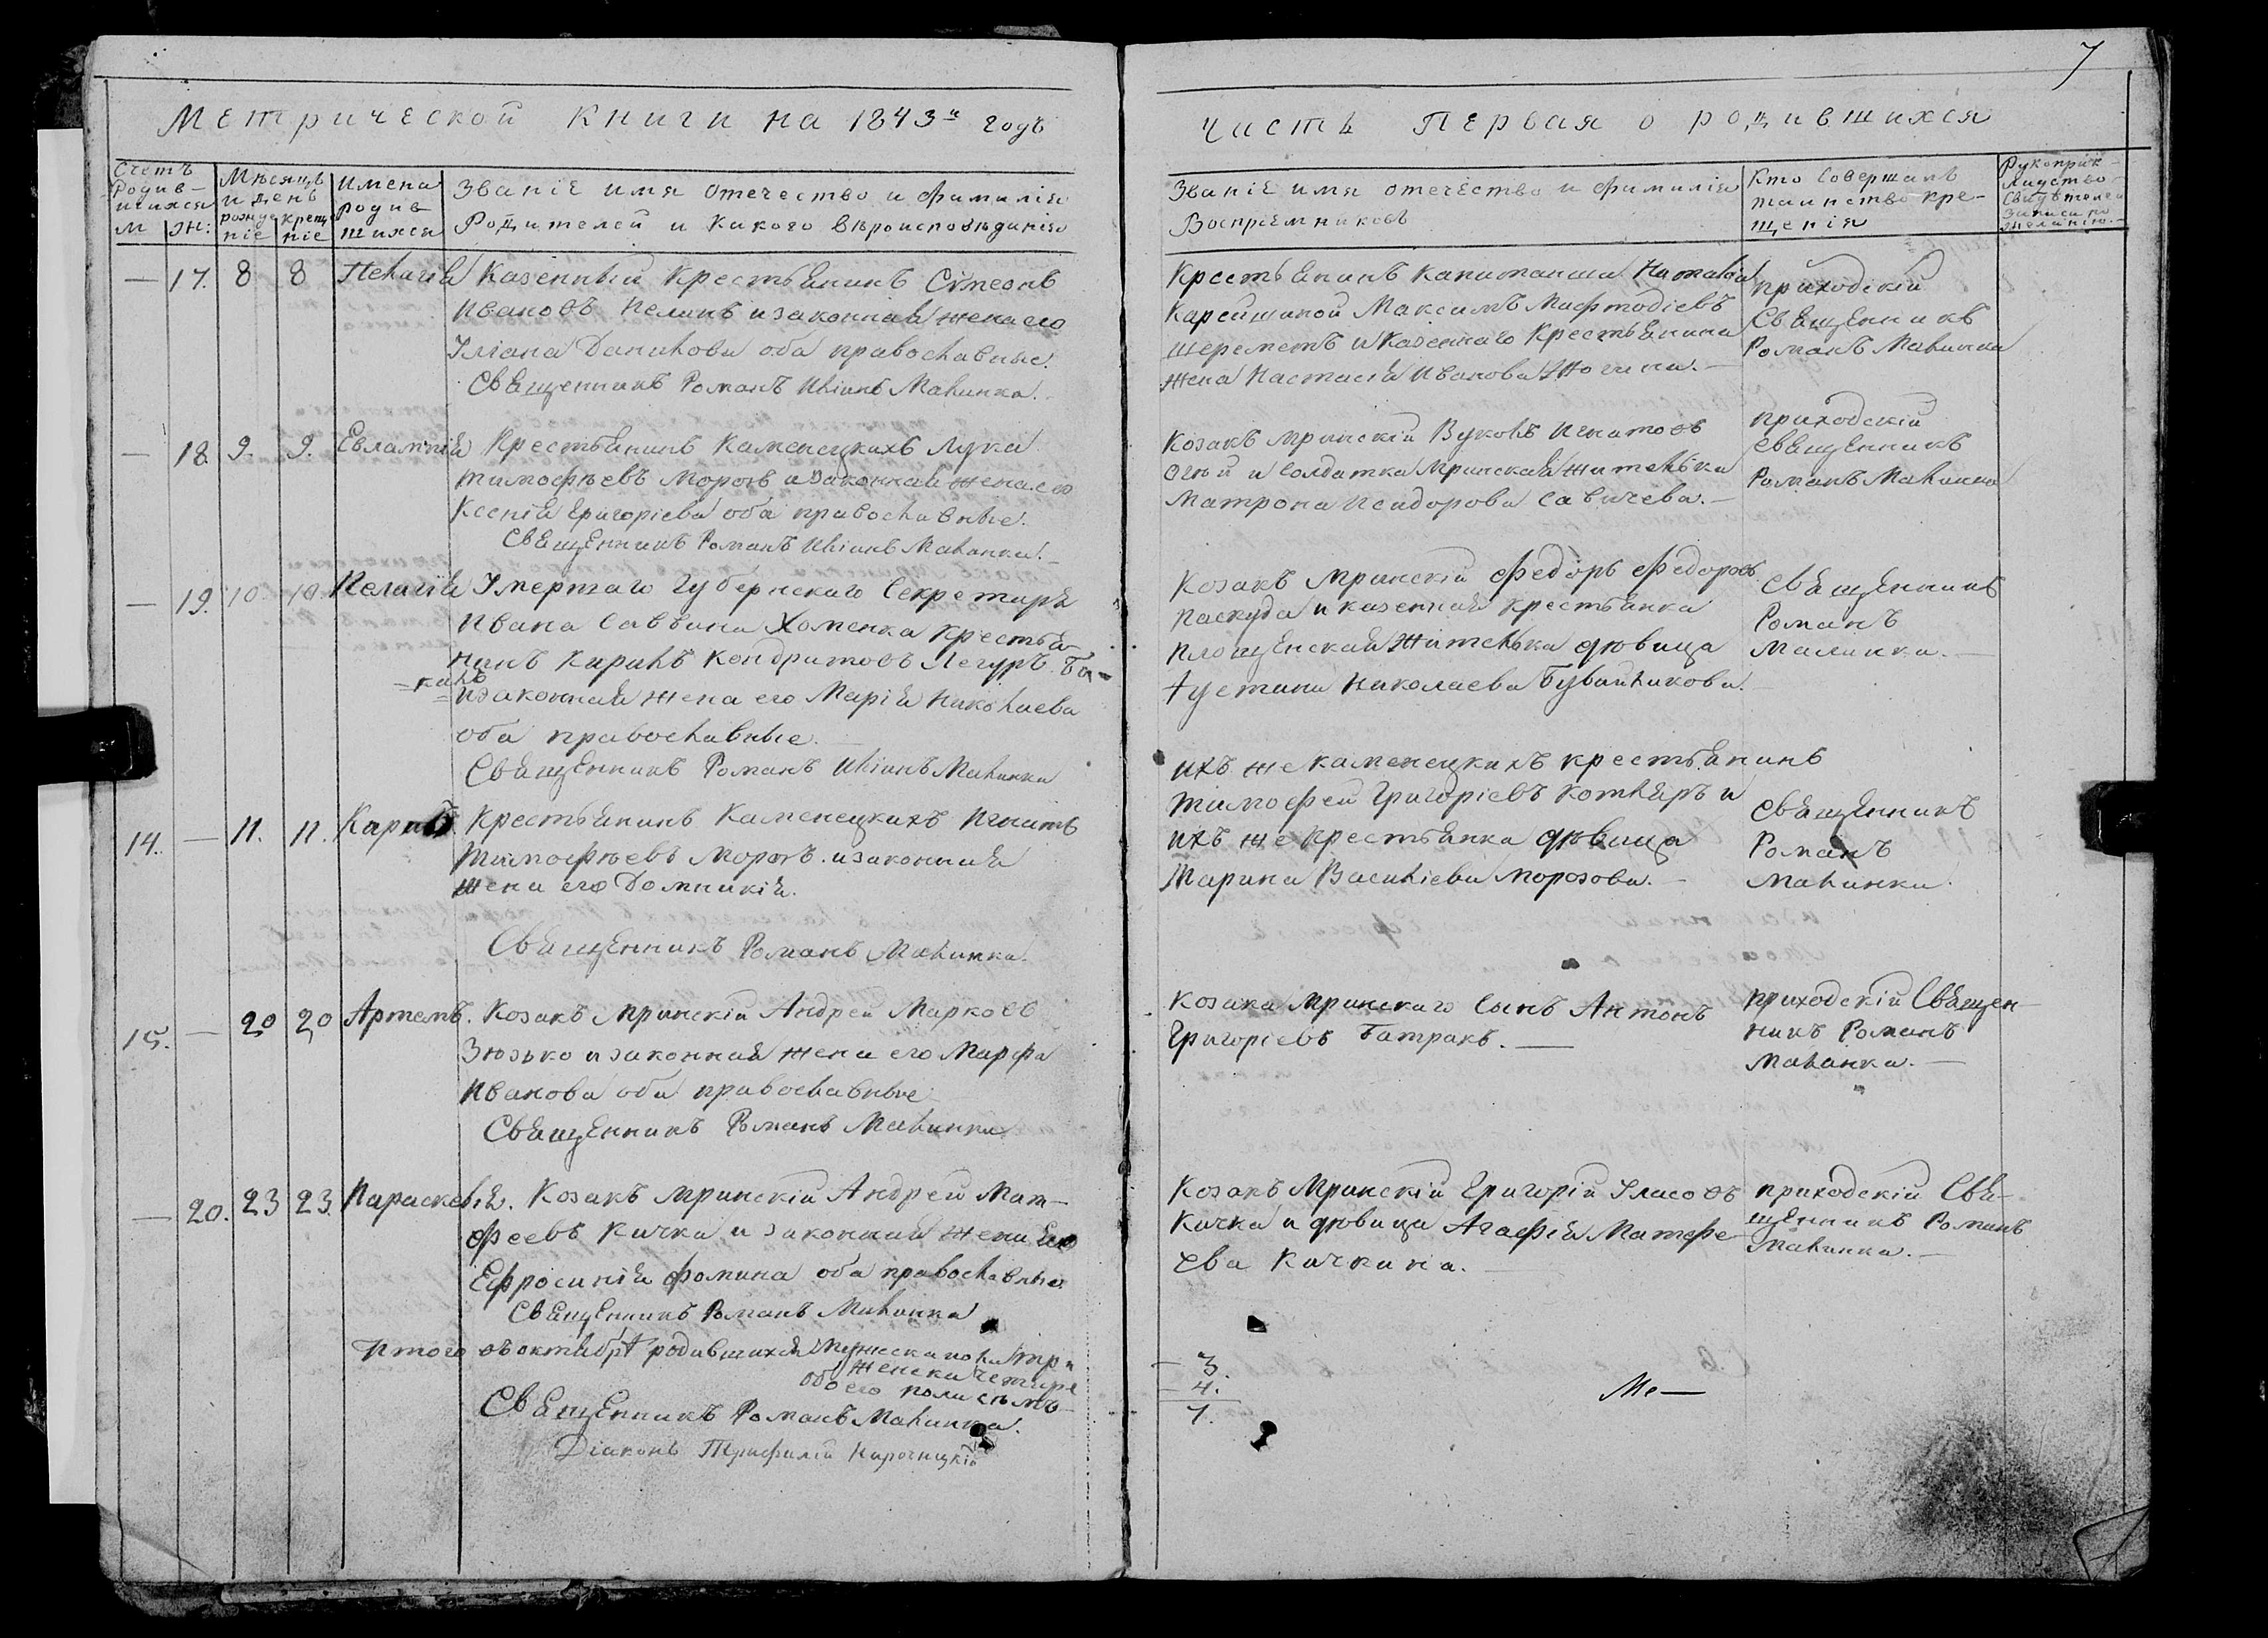 7
Метрической книги на 1843й годъ
Часть Первая о родившихся
Счетъ Родив-шихся
м ж:
Мѣсяцъ и день
рождение крещение
имена Родив шихся
Званіе имя отечество и фамилія
Родителей и какого вѣроисповѣданія
Званіе имя отечество и фамилія
Воспріемниковъ
Кто Совершалъ
таинство кре-
щенія
Рукоприк-
Свидѣтелей
записи по
желанію.
— 17. 8 8 Пелагія Казенный Крестьянинъ Сѵмеонъ
Ивановъ Пелипъ и законная жена его
Уліана Данилова оба православные.
Священникъ Романъ Малинка.
Крестьянинъ капитанши Наталіи
Максимъ Мефтодіевъ
Шереметъ и Казеннаго Крестьянина
жена Настасія Иванова
приходскій
Священникъ
Романъ Малинка
— 18. 9. 9. Евлампія Крестьянинъ Каменецкихъ Лука
Тимофѣевъ Морозъ и законная жена его
Ксенія Григоріева оба православные.
Священникъ Романъ Малинка. —
Козакъ мринскій Вуколъ Игнатовъ
и Солдатка Мринская жителька
Матрона Исидорова Савичева. —
приходскій
священникъ
Романъ Малинка
— 19. 10. 10 Пелагія Умершаго Губернскаго Секретаря
Ивана Саввина Хоменка Крестья-
нинъ Кирилъ Кондратовъ
и законная жена его Марія Николаева
оба православные. —
Священникъ Романъ Малинка
Козакъ Мринскій Федоръ Федоровъ
Паскуда и казенная крестьянка
Площенская Жителька дѣвица
Густина Николаева Бувайликова.
Священникъ
Романъ
Малинка. —
14. — 11. 11. Карпъ. Крестьянинъ Каменецкихъ Игнатъ
Тимофѣевъ Морозъ. и законная
жена его Домникія.
Священникъ Романъ Малинка.
ихъ же каменецкихъ крестьянинъ
Тимофей Григоріевъ Котляръ и
ихъ же Крестьянка дѣвица
Марина Василіева Морозова. —
Священникъ
Романъ
Малинка.
15. — 20 20 Артемъ. Козакъ Мринскій Андрей Марковъ
Зюзько и законная жена его Марфа
Иванова оба православные
Священникъ Романъ Малинка
Козака Мринскаго Сынъ Антонъ
Григоріевъ Батракъ. —
приходскій Священ-
никъ Романъ
Малинка. —
— 20. 23 23. Параскевія. Козакъ мринскій Андрей Мат-
феевъ Кичка и законная жена его
Ефросинія Фомина оба православные
Священникъ Романъ Малинка
Козакъ Мринскій Григорій Уласовъ
Кичка и дѣвица Агафія Матфе
ева Кичкина. —
приходскій Свя-
щенникъ Романъ
Малинка. —
Итого въ октябрѣ родившихся мужеска пола три
женска четыре
обоего пола семь
Священникъ Романъ Малинка.
Діаконъ Трифилій
— 3.
— 4.
7.
Ме—